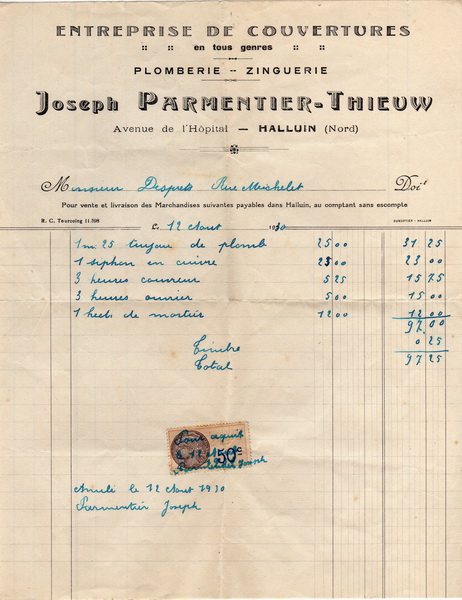 ENTREPRISE DE COUVERTURES
en tous genres
PLOMBERIE -- ZINGUERIE
Joseph PARMENTIER-THIEUW
Avenue de l'Hôpital — HALLUIN (Nord)
Monsieur Desprets Rue Michelet Doit
Pour vente et livraison des Marchandises suivantes payables dans Halluin, au comptant sans escompte
R. C. Tourcoing 11.508
Le 12 Aout 1930
1 m 25 tuyau de plomb 25 00 31 25
1 siphon en cuivre 23 00 23 00
3 heures couvreur 5 25 15 75
3 heures ouvrier 5 00 15 00
1 hect de mortier 12 00 12 00
97 00
Timbre 0 25
Total 97 25
Pour acquit
le 12
50c
Joseph
le 12 Aout 1930
Parmentier Joseph